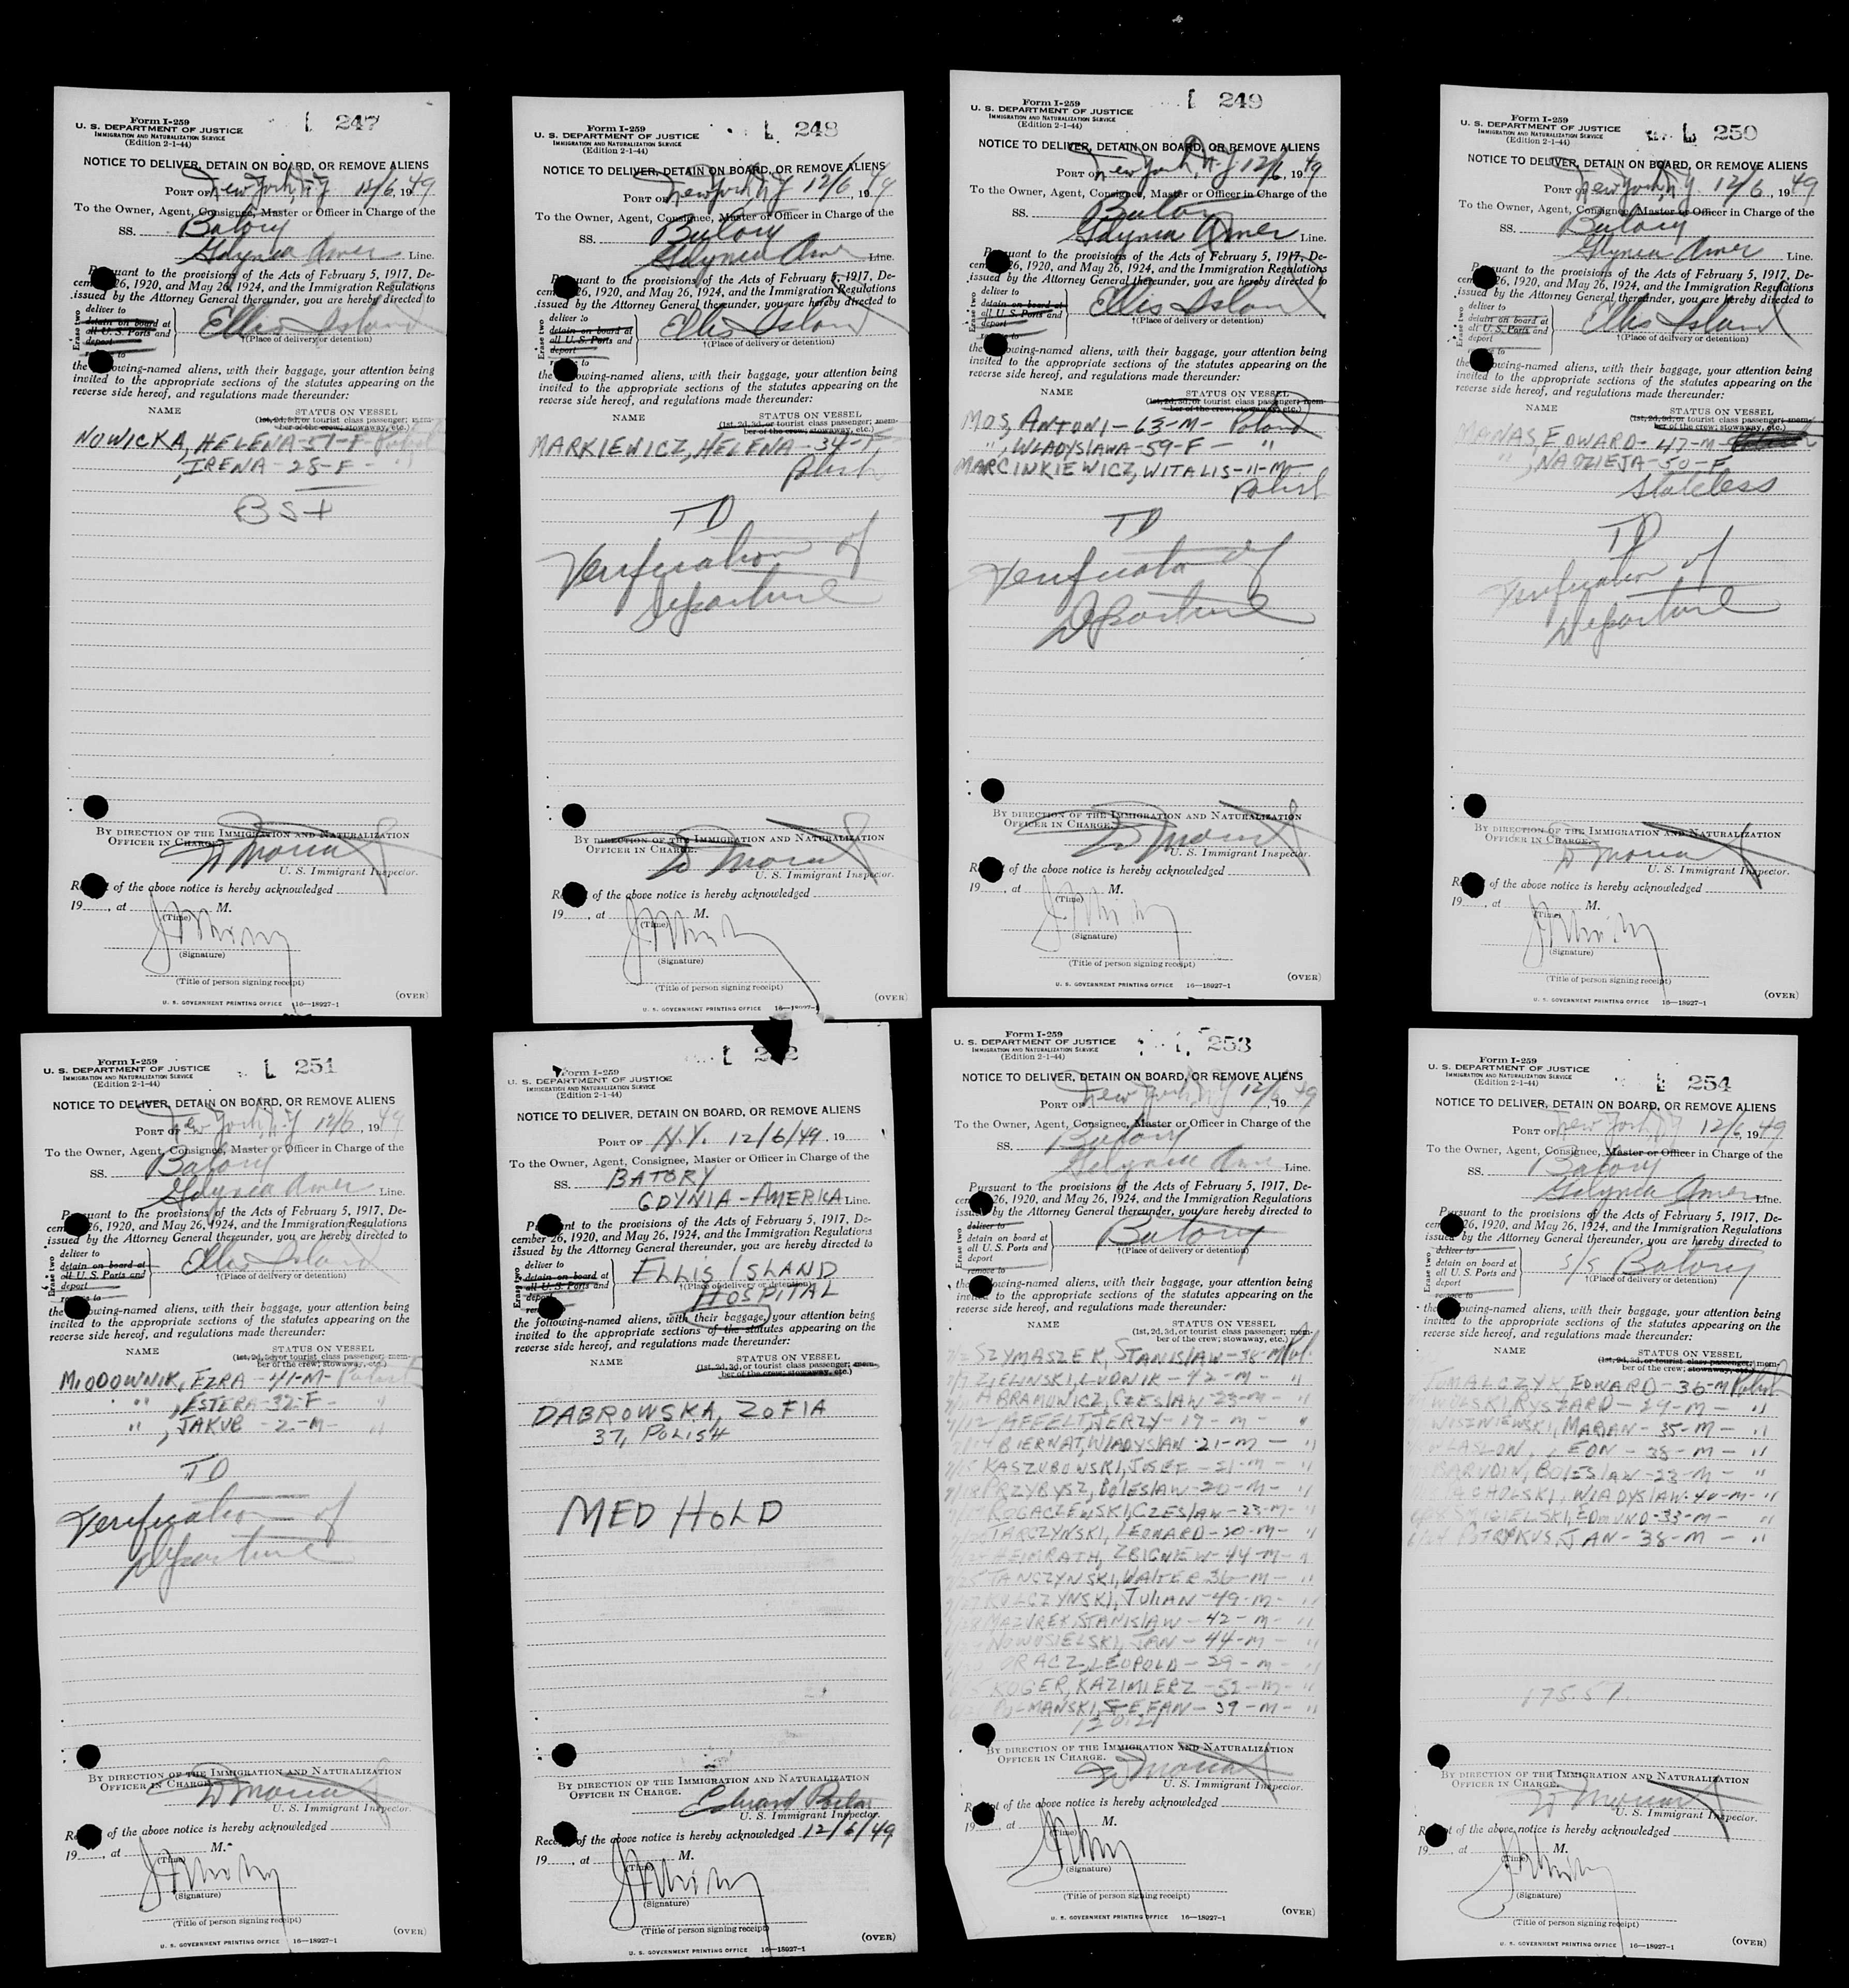 Form I-259
L 247
U. S. DEPARTMENT OF JUSTICE
IMMIGRATION AND NATURALIZATION SERVICE
(Edition 2-1-44)
NOTICE TO DELIVER, DETAIN ON BOARD, OR REMOVE ALIENS
PORT OF New York, N.Y 12/6, 1949
To the Owner, Agent, Consignee, Master or Officer in Charge of the
SS. Batory
Gdynia Amer Line.
Pursuant to the provisions of the Acts of February 5, 1917, De-
cem 26, 1920, and May 26, 1924, and the Immigration Regulations
issued by the Attorney General thereunder, you are hereby directed to
Erase two
deliver to
detain on board at
all U. S. Ports and
deport
to
Ellis Island
†(Place of delivery or detention)
the owing-named aliens, with their baggage, your attention being
invited to the appropriate sections of the statutes appearing on the
reverse side hereof, and regulations made thereunder:
NAME STATUS ON VESSEL
(1st, 2d, 3d, or tourist class passenger; mem-
ber of the crew; stowaway, etc.)
NOWICKA, HELENA-51-F-Polish
, IRENA-28-F- "
BSI
BY DIRECTION OF THE IMMIGRATION AND NATURALIZATION
OFFICER IN CHARGE.
U. S. Immigrant Inspector.
R t of the above notice is hereby acknowledged
19 , at M.
(Time)
(Signature)
(Title of person signing receipt)
U. S. GOVERNMENT PRINTING OFFICE 16—18927-1
(OVER)
Form I-259
L 248
U. S. DEPARTMENT OF JUSTICE
IMMIGRATION AND NATURALIZATION SERVICE
(Edition 2-1-44)
NOTICE TO DELIVER, DETAIN ON BOARD, OR REMOVE ALIENS
PORT OF New York, N.Y 12/6, 1949
To the Owner, Agent, Consignee, Master or Officer in Charge of the
SS. Batory
Gdynia Amer Line.
Pursuant to the provisions of the Acts of February 5, 1917, De-
cem 26, 1920, and May 26, 1924, and the Immigration Regulations
issued by the Attorney General thereunder, you are hereby directed to
Erase two
deliver to
detain on board at
all U. S. Ports and
deport
re to
Ellis Island
†(Place of delivery or detention)
the owing-named aliens, with their baggage, your attention being
invited to the appropriate sections of the statutes appearing on the
reverse side hereof, and regulations made thereunder:
NAME STATUS ON VESSEL
(1st, 2d, 3d, or tourist class passenger; mem-
ber of the crew; stowaway, etc.)
MARKIEWICZ, HELENA-34-F
Polish
TD
Verification of
Departure
BY DIRECTION OF THE IMMIGRATION AND NATURALIZATION
OFFICER IN CHARGE.
U. S. Immigrant Inspector.
R t of the above notice is hereby acknowledged
19 , at M.
(Time)
(Signature)
(Title of person signing receipt)
U. S. GOVERNMENT PRINTING OFFICE 16—18927-1
(OVER)
Form I-259
L 249
U. S. DEPARTMENT OF JUSTICE
IMMIGRATION AND NATURALIZATION SERVICE
(Edition 2-1-44)
NOTICE TO DELIVER, DETAIN ON BOARD, OR REMOVE ALIENS
PORT OF New York, N.Y 12/6, 1949
To the Owner, Agent, Consignee, Master or Officer in Charge of the
SS. Batory
Gdynia Amer Line.
Pursuant to the provisions of the Acts of February 5, 1917, De-
cem 26, 1920, and May 26, 1924, and the Immigration Regulations
issued by the Attorney General thereunder, you are hereby directed to
Erase two
deliver to
detain on board at
all U. S. Ports and
deport
to
Ellis Island
†(Place of delivery or detention)
the owing-named aliens, with their baggage, your attention being
invited to the appropriate sections of the statutes appearing on the
reverse side hereof, and regulations made thereunder:
NAME STATUS ON VESSEL
(1st, 2d, 3d, or tourist class passenger; mem-
ber of the crew; stowaway, etc.)
MOS, ANTONI-63-M- Poland
" , WLADYSLAWA-59-F- "
MARCINKIEWICZ, WITALIS-11-M-
Polish
TD
Verification of
Departure
BY DIRECTION OF THE IMMIGRATION AND NATURALIZATION
OFFICER IN CHARGE.
U. S. Immigrant Inspector.
R t of the above notice is hereby acknowledged
19 , at M.
(Time)
(Signature)
(Title of person signing receipt)
U. S. GOVERNMENT PRINTING OFFICE 16—18927-1
(OVER)
Form I-259
L 250
U. S. DEPARTMENT OF JUSTICE
IMMIGRATION AND NATURALIZATION SERVICE
(Edition 2-1-44)
NOTICE TO DELIVER, DETAIN ON BOARD, OR REMOVE ALIENS
PORT OF New York, N.Y 12/6, 1949
To the Owner, Agent, Consignee, Master or Officer in Charge of the
SS. Batory
Gdynia Amer Line.
Pursuant to the provisions of the Acts of February 5, 1917, De-
cem 26, 1920, and May 26, 1924, and the Immigration Regulations
issued by the Attorney General thereunder, you are hereby directed to
Erase two
deliver to
detain on board at
all U. S. Ports and
deport
to
Ellis Island
†(Place of delivery or detention)
the owing-named aliens, with their baggage, your attention being
invited to the appropriate sections of the statutes appearing on the
reverse side hereof, and regulations made thereunder:
NAME STATUS ON VESSEL
(1st, 2d, 3d, or tourist class passenger; mem-
ber of the crew; stowaway, etc.)
MANAS, EDWARD-47-M-
" , NADZIEJA-50-F
Stateless
TD
Verification of
Departure
BY DIRECTION OF THE IMMIGRATION AND NATURALIZATION
OFFICER IN CHARGE.
U. S. Immigrant Inspector.
R t of the above notice is hereby acknowledged
19 , at M.
(Time)
(Signature)
(Title of person signing receipt)
U. S. GOVERNMENT PRINTING OFFICE 16—18927-1
(OVER)
Form I-259
L 251
U. S. DEPARTMENT OF JUSTICE
IMMIGRATION AND NATURALIZATION SERVICE
(Edition 2-1-44)
NOTICE TO DELIVER, DETAIN ON BOARD, OR REMOVE ALIENS
PORT OF New York, N.Y 12/6, 1949
To the Owner, Agent, Consignee, Master or Officer in Charge of the
SS. Batory
Gdynia Amer Line.
Pursuant to the provisions of the Acts of February 5, 1917, De-
cem 26, 1920, and May 26, 1924, and the Immigration Regulations
issued by the Attorney General thereunder, you are hereby directed to
Erase two
deliver to
detain on board at
all U. S. Ports and
deport
to
Ellis Island
†(Place of delivery or detention)
the owing-named aliens, with their baggage, your attention being
invited to the appropriate sections of the statutes appearing on the
reverse side hereof, and regulations made thereunder:
NAME STATUS ON VESSEL
(1st, 2d, 3d, or tourist class passenger; mem-
ber of the crew; stowaway, etc.)
MIODOWNIK, EZRA-41-M-Polish
" , ESTERA-32-F- "
" , JAKUB-2-M- "
TD
Verification of
Departure
BY DIRECTION OF THE IMMIGRATION AND NATURALIZATION
OFFICER IN CHARGE.
U. S. Immigrant Inspector.
R t of the above notice is hereby acknowledged
19 , at M.
(Time)
(Signature)
(Title of person signing receipt)
U. S. GOVERNMENT PRINTING OFFICE 16—18927-1
(OVER)
Form I-259
L 2 2
U. S. DEPARTMENT OF JUSTICE
IMMIGRATION AND NATURALIZATION SERVICE
(Edition 2-1-44)
NOTICE TO DELIVER, DETAIN ON BOARD, OR REMOVE ALIENS
PORT OF N.Y. 12/6/49. 19
To the Owner, Agent, Consignee, Master or Officer in Charge of the
SS. BATORY
GDYNIA-AMERICA Line.
Pursuant to the provisions of the Acts of February 5, 1917, De-
cember 26, 1920, and May 26, 1924, and the Immigration Regulations
issued by the Attorney General thereunder, you are hereby directed to
Erase two
deliver to
detain on board at
all U. S. Ports and
deport
ELLIS ISLAND
†(Place of delivery or detention)
HOSPITAL
the following-named aliens, with their baggage, your attention being
invited to the appropriate sections of the statutes appearing on the
reverse side hereof, and regulations made thereunder:
NAME STATUS ON VESSEL
(1st, 2d, 3d, or tourist class passenger; mem-
ber of the crew; stowaway, etc.)
DABROWSKA, ZOFIA
37, POLISH
MED HOLD
BY DIRECTION OF THE IMMIGRATION AND NATURALIZATION
OFFICER IN CHARGE.
Edward
U. S. Immigrant Inspector.
Rece of the above notice is hereby acknowledged 12/6/49
19 , at M.
(Time)
(Signature)
(Title of person signing receipt)
U. S. GOVERNMENT PRINTING OFFICE 16—18927-1
(OVER)
Form I-259
L 253
U. S. DEPARTMENT OF JUSTICE
IMMIGRATION AND NATURALIZATION SERVICE
(Edition 2-1-44)
NOTICE TO DELIVER, DETAIN ON BOARD, OR REMOVE ALIENS
PORT OF New York, N.Y 12/6, 1949
To the Owner, Agent, Consignee, Master or Officer in Charge of the
SS. Batory
Gdynia Amer Line.
Pursuant to the provisions of the Acts of February 5, 1917, De-
cem 26, 1920, and May 26, 1924, and the Immigration Regulations
issued by the Attorney General thereunder, you are hereby directed to
Erase two
deliver to
detain on board at
all U. S. Ports and
deport
remove to
Batory
†(Place of delivery or detention)
the owing-named aliens, with their baggage, your attention being
invited to the appropriate sections of the statutes appearing on the
reverse side hereof, and regulations made thereunder:
NAME STATUS ON VESSEL
(1st, 2d, 3d, or tourist class passenger; mem-
ber of the crew; stowaway, etc.)
SZYMASZEK, STANISlAW-38-M Pol.
ZIELINSKI, LUDWIK-42-M- "
ABRAMOWICZ, CZESlAW-23-M- "
AFFELT, JERZY-19-M- "
BIERNAT, WlADYSlAW-21-M- "
KASZUBOWSKI, JOSEF-21-M- "
PRZYBYSZ, BOlESlAW-20-M- "
ROGACZEWSKI, CZESlAW-23-M- "
TARCZYNSKI, LEONARD-20-M- "
HEIMRATH, ZBIGNIEW-44-M- "
TANCZYNSKI, WALTER 36-M- "
KULCZYNSKI, JULIAN-49-M- "
MAZUREK, STANISlAW-42-M- "
NOWOSIELSKI, JAN-44-M- "
ORACZ, LEOPOLD-29-M- "
KOGER, KAZIMIERZ-52-M- "
MANSKI, STEFAN-39-M- "
BY DIRECTION OF THE IMMIGRATION AND NATURALIZATION
OFFICER IN CHARGE.
U. S. Immigrant Inspector.
R t of the above notice is hereby acknowledged
19 , at M.
(Time)
(Signature)
(Title of person signing receipt)
U. S. GOVERNMENT PRINTING OFFICE 16—18927-1
(OVER)
Form I-259
L 254
U. S. DEPARTMENT OF JUSTICE
IMMIGRATION AND NATURALIZATION SERVICE
(Edition 2-1-44)
NOTICE TO DELIVER, DETAIN ON BOARD, OR REMOVE ALIENS
PORT OF New York, N.Y 12/6, 1949
To the Owner, Agent, Consignee, Master or Officer in Charge of the
SS. Batory
Gdynia Amer Line.
Pursuant to the provisions of the Acts of February 5, 1917, De-
cem 26, 1920, and May 26, 1924, and the Immigration Regulations
issued by the Attorney General thereunder, you are hereby directed to
Erase two
deliver to
detain on board at
all U. S. Ports and
deport
remove to
S/S Batory
†(Place of delivery or detention)
the owing-named aliens, with their baggage, your attention being
invited to the appropriate sections of the statutes appearing on the
reverse side hereof, and regulations made thereunder:
NAME STATUS ON VESSEL
(1st, 2d, 3d, or tourist class passenger; mem-
ber of the crew; stowaway, etc.)
TOMALCZYK, EDWARD-36-M Polish
WOLSKI, RYSZARD-29-M- "
WISZNIEWSKI, MARIAN-35-M- "
LEON-38-M- "
BARUDIN, BOlESlAW-23-M- "
CHOLSKI, WlADYSlAW-40-M- "
EDMUND-33-M- "
POTRYKUS, JAN-38-M- "
175.57.
BY DIRECTION OF THE IMMIGRATION AND NATURALIZATION
OFFICER IN CHARGE.
U. S. Immigrant Inspector.
R t of the above notice is hereby acknowledged
19 , at M.
(Time)
(Signature)
(Title of person signing receipt)
U. S. GOVERNMENT PRINTING OFFICE 16—18927-1
(OVER)